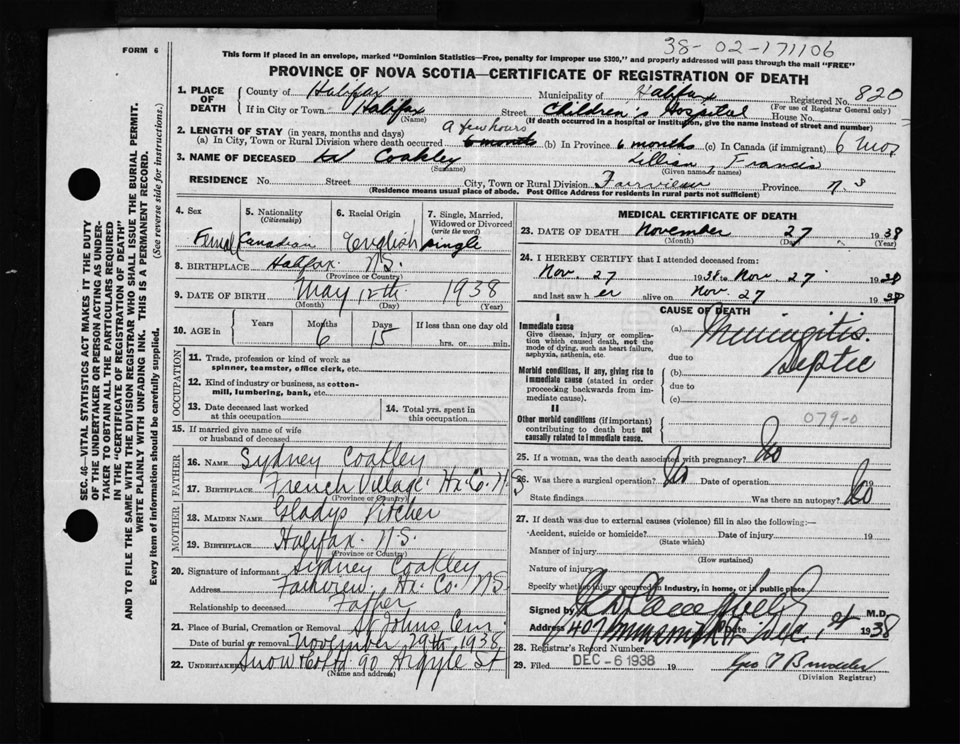 38-02-171106
FORM 6
This form if placed in an envelope, marked "Dominion Statistics—Free, penalty for improper use $300," and properly addressed will pass through the mail "FREE"
PROVINCE OF NOVA SCOTIA—CERTIFICATE OF REGISTRATION OF DEATH
1. PLACE OF DEATH County of Halifax Municipality of Halifax Registered No. 820
(For use of Registrar General only)
If in City or Town Halifax (Name) Street Children's Hospital House No.
(If death occurred in a hospital or institution, give the name instead of street and number)
2. LENGTH OF STAY (in years, months and days) a few hours
(a) In City, Town or Rural Division where death occurred 6 months (b) In Province 6 months (c) In Canada (if immigrant) 6 mos
3. NAME OF DECEASED Coakley (Surname) Lillian, Francis (Given name or names)
RESIDENCE No. Street City, Town or Rural Division Fairview Province N.S
(Residence means usual place of abode. Post Office Address for residents in rural parts not sufficient)
4. Sex Female
5. Nationality (Citizenship) Canadian
6. Racial Origin English
7. Single, Married, Widowed or Divorced (write the word) single
8. BIRTHPLACE Halifax N.S.
(Province or Country)
9. DATE OF BIRTH May 12th 1938
(Month) (Day) (Year)
10. AGE in Years Months 6 Days 15 If less than one day old hrs. or min.
OCCUPATION
11. Trade, profession or kind of work as spinner, teamster, office clerk, etc.
12. Kind of industry or business, as cotton-mill, lumbering, bank, etc.
13. Date deceased last worked at this occupation
14. Total yrs. spent in this occupation
15. If married give name of wife or husband of deceased
FATHER
16. Name Sydney Coakley
17. Birthplace French Village Hx. Co. N.S
(Province or Country)
MOTHER
18. Maiden Name Gladys Pitcher
19. Birthplace Halifax N.S.
(Province or Country)
20. Signature of informant Sydney Coakley
Address Fairview Hx. Co. N.S
Relationship to deceased Father
21. Place of Burial, Cremation or Removal St Johns Cem.
Date of burial or removal November 29th 1938
22. Undertaker Snow & Co Ltd 90 Argyle St
(Name and address)
MEDICAL CERTIFICATE OF DEATH
23. DATE OF DEATH November 27 1938
(Month) (Day) (Year)
24. I HEREBY CERTIFY that I attended deceased from:
Nov. 27 1938 to Nov. 27 1938
and last saw her alive on Nov. 27 1938
CAUSE OF DEATH
I
Immediate cause
Give disease, injury or complication which caused death, not the mode of dying, such as heart failure, asphyxia, asthenia, etc.
(a) Meningitis
due to
Morbid conditions, if any, giving rise to immediate cause (stated in order proceeding backwards from immediate cause).
(b) Septic
due to
(c)
II
Other morbid conditions (if important) contributing to death but not causally related to immediate cause.
079-0
25. If a woman, was the death associated with pregnancy? No
26. Was there a surgical operation? No Date of operation 19
State findings Was there an autopsy? No
27. If death was due to external causes (violence) fill in also the following:—
Accident, suicide or homicide? Date of injury 19
(State which)
Manner of injury
(How sustained)
Nature of injury
Specify whether injury occurred in industry, in home, or in public place
Signed by M.D.
Address 407 Date Dec. 1st 1938
28. Registrar's Record Number
29. Filed DEC -6 1938 19
(Division Registrar)
SEC. 46—VITAL STATISTICS ACT MAKES IT THE DUTY OF THE UNDERTAKER OR PERSON ACTING AS UNDERTAKER TO OBTAIN ALL THE PARTICULARS REQUIRED IN THE "CERTIFICATE OF REGISTRATION OF DEATH"
AND TO FILE THE SAME WITH THE DIVISION REGISTRAR WHO SHALL ISSUE THE BURIAL PERMIT.
WRITE PLAINLY WITH UNFADING INK. THIS IS A PERMANENT RECORD.
Every item of information should be carefully supplied. (See reverse side for instructions.)